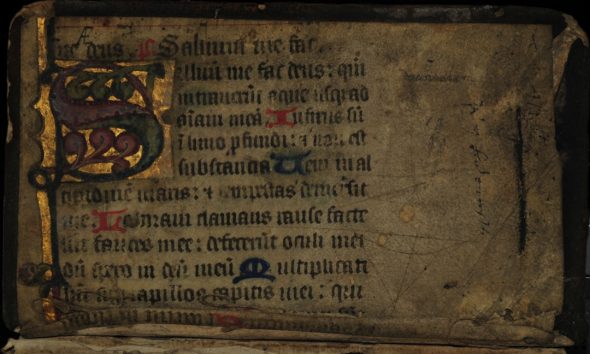 me deus. Salvum me fac.
Salvum me fac deus: qm̄
intraverūt aque usq; ad
aīam meā. Infixus sū
ī limo p̄fundi: ⁊ non est
substancia. Veni in al
titudinē maris: ⁊ tempestas demersit
me. Laboravi clamans rauce facte
sūt fauces mee: defecerūt oculi mei
dū spero in deū meū. Multiplicati
sūt sup capillos capitis mei: qui